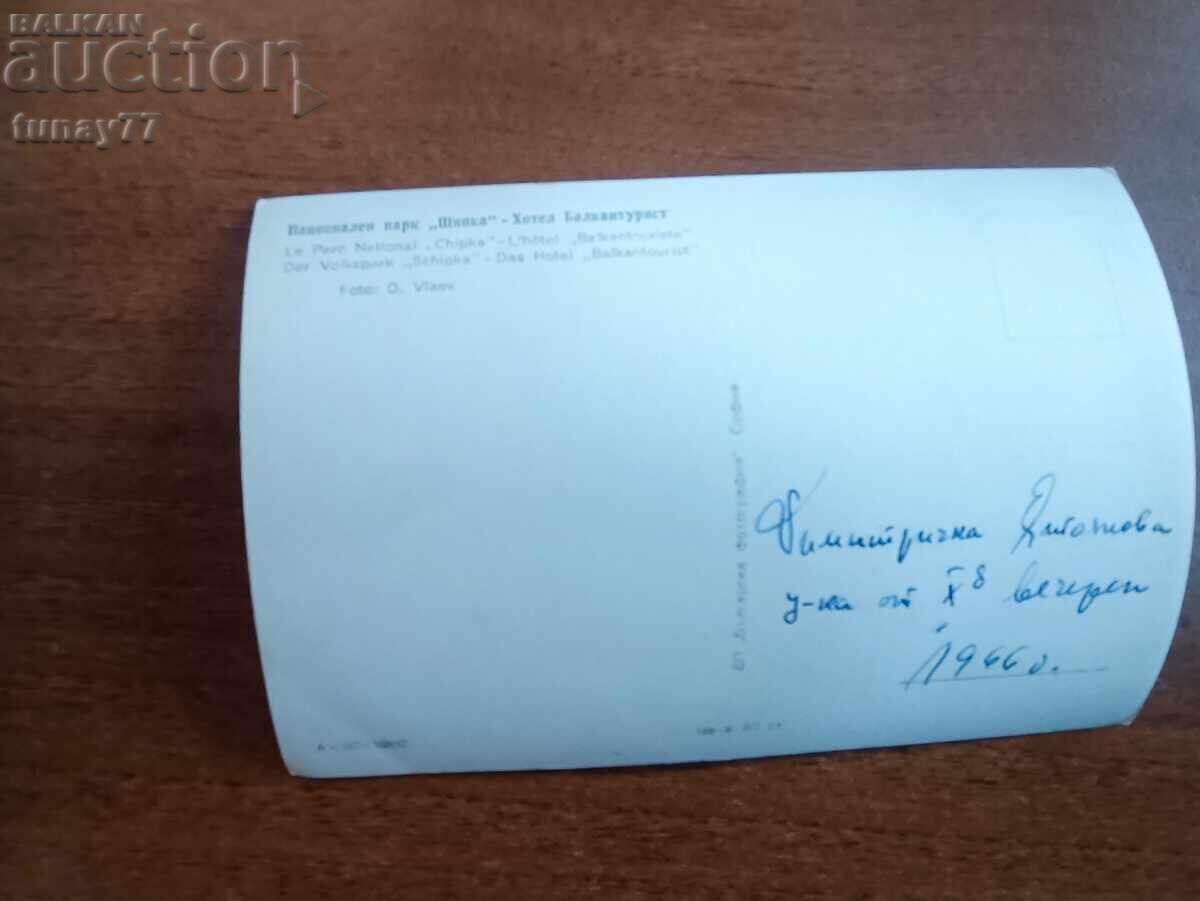 BALKAN
auction
tunay77
Национален парк „Шипка“ - Хотел Балкантурист
Le Parc National „Chipka“ - L'hôtel „Balkantouriste“
Der Volkspark „Schipka“ - Das Hotel „Balkantourist“
Foto: D. Vlaev
ДП „Българска фотография“ София
Димитричка
у-ка от X⁸ вечерен
1966 г.